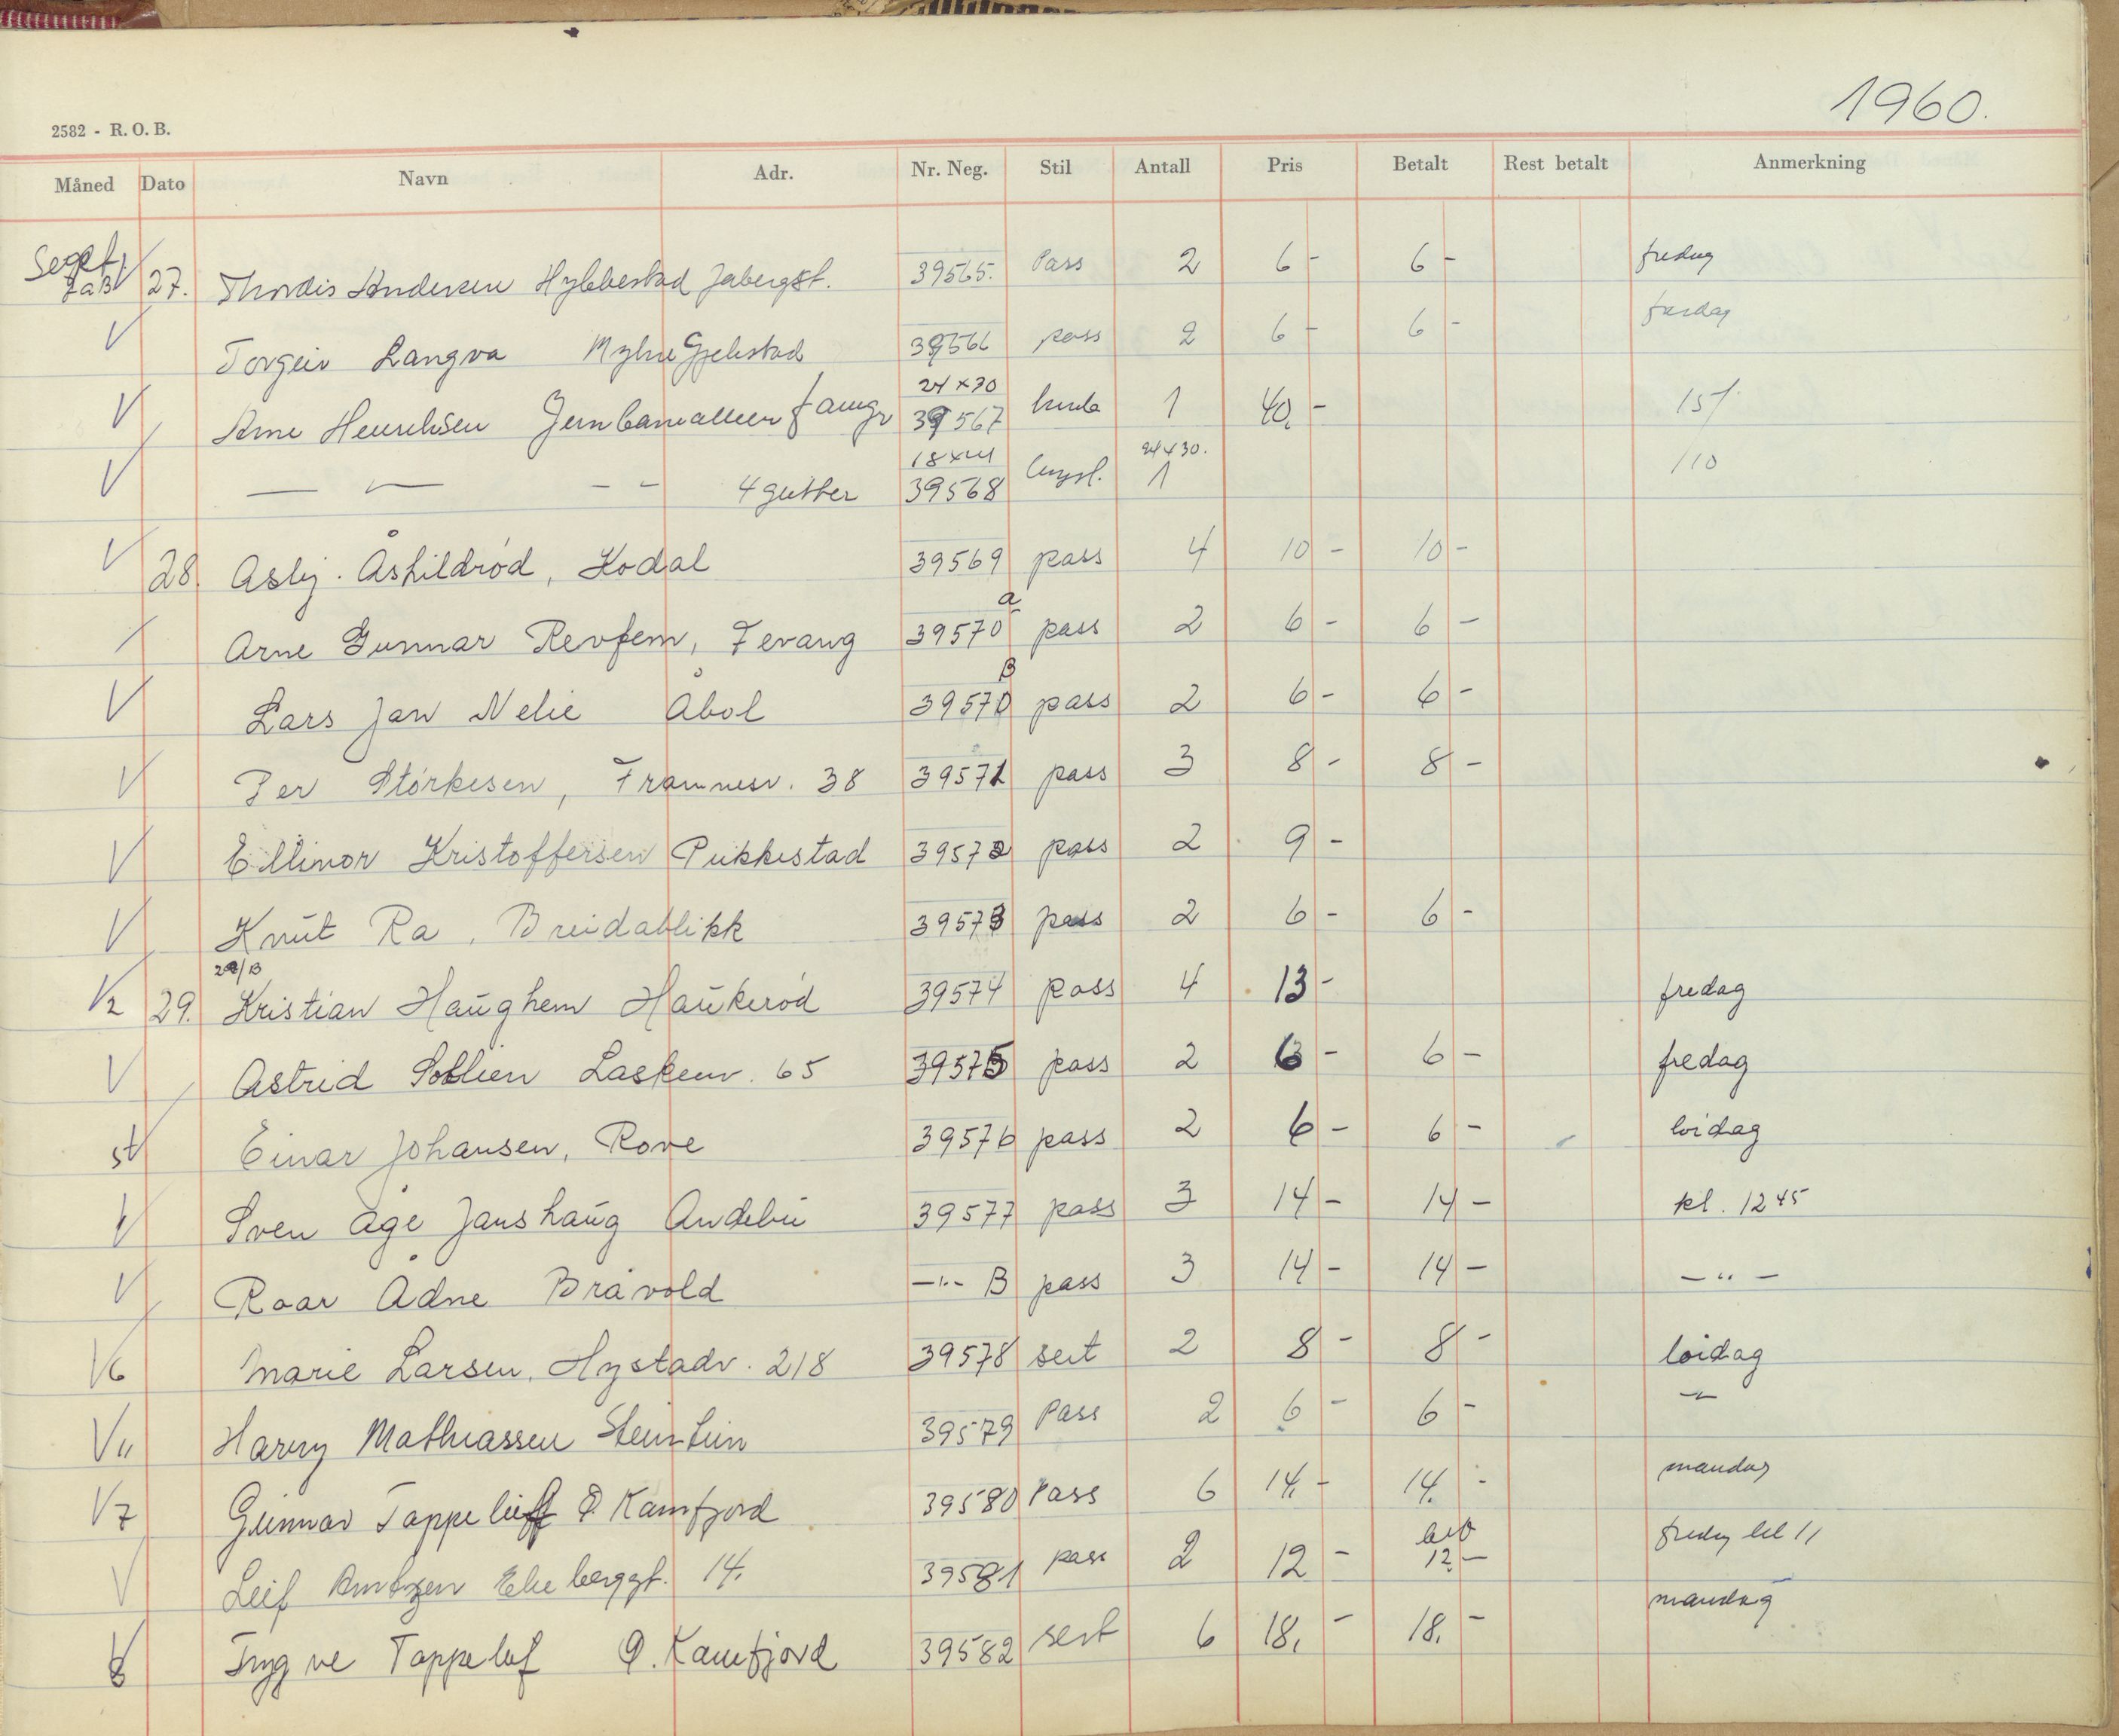 1960.
2582 - R. O. B.
Måned Dato Navn Adr. Nr. Neg. Stil Antall Pris Betalt Rest betalt Anmerkning
Sept. 27. Thordis Andersen Hybbestad 39565. Pass 2 6 - 6 - fredag
Torgeir Langva Gjekstad 39566 pass 2 6 - 6 - fredag
24 x 30
Arne Jernbanealleen 39567 1 40, -
18 x 24 24 x 30.
— — - - 4 gutter 39568 1
28. Asbj. Åshildrød, Kodal 39569 pass 4 10 - 10 -
a
Arne Gunnar Revfem, Fevang 39570 pass 2 6 - 6 -
B
Lars Jan Nelie Åbol 39570 pass 2 6 - 6 -
Per Størkesen, Framnesv. 38 39571 pass 3 8 - 8 -
Ellinor Kristoffersen Pukkestad 39572 pass 2 9 -
Knut Ra, Breidablikk 39573 pass 2 6 - 6 -
V2 29. Kristian Haughem Haukerød 39574 pass 4 13 - fredag
Astrid 65 39575 pass 2 6 - 6 - fredag
Einar Johansen, Rove 39576 pass 2 6 - 6 - loidag
Sven Åge Janshaug Andebu 39577 pass 3 14 - 14 - kl. 12 45
Roar Ådne Bråvold —"- B pass 3 14 - 14 - — " —
V6 Marie Larsen, Hystadv. 218 39578 sert 2 8 - 8 - loidag
V11 Harry Mathiassen 39579 Pass 2 6 - 6 - —"—
V7 Gunnar Kamfjord 39580 Pass 6 14, - 14. - mandag
Leif 14. 39581 pass 2 12 - 12. — fredag kl 11
Tryg ve Tappeluf Ø. Kamfjord 39582 sert 6 18, - 18, - mandag